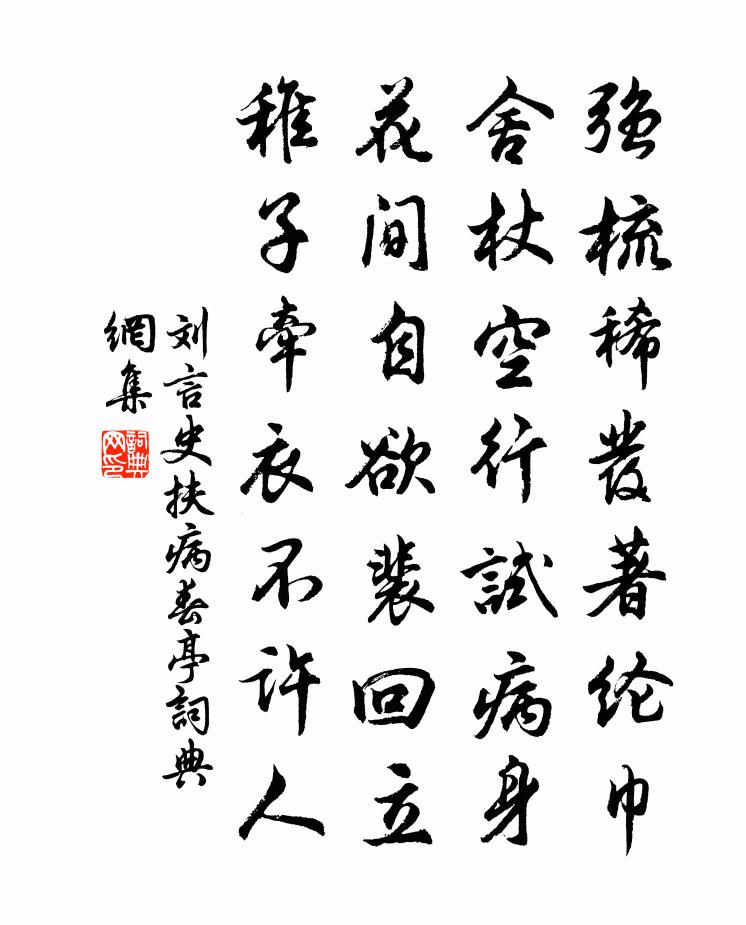 强梳稀发著纶巾
舍杖空行試病身
花间自欲裴回立
稚子牽衣不许人
刘言史扶病春亭詞典
網集
詞典
网印